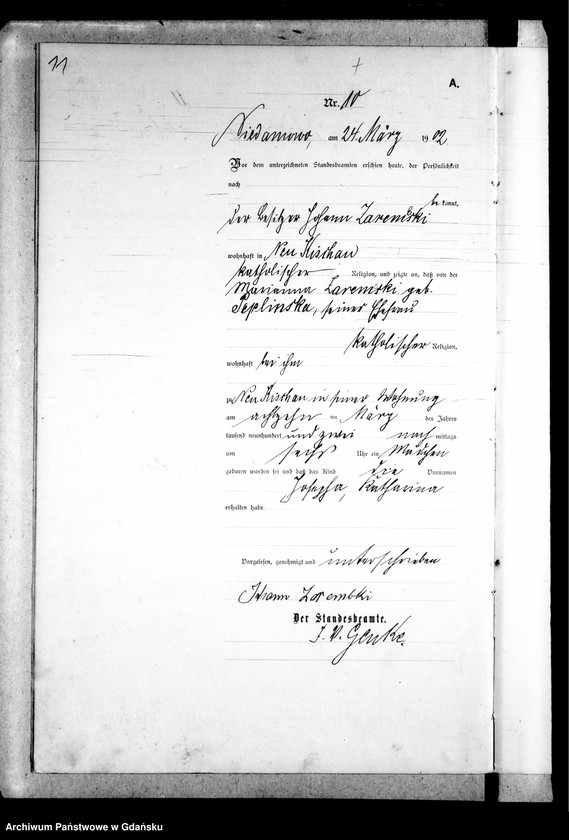 11
A.
Nr. 10
Niedamowo, am 24. März 1902
Vor dem unterzeichneten Standesbeamten erschien heute, der Persönlichkeit
nach
be kannt,
der Besitzer Johann Zaremski
wohnhaft in Neu Kischau
katholischer Religion, und zeigte an, daß von der
Marianna Zaremski geb.
Peplinska, seiner Ehefrau
katholischer Religion,
wohnhaft bei ihm
zu Neu Kischau in seiner Wohnung
am achtzehn ten März des Jahres
tausend neunhundert und zwei nach mittags
um sechs Uhr ein Mädchen
geboren worden sei und daß das Kind die Vornamen
Josepha, Katharina
erhalten habe.
Vorgelesen, genehmigt und unterschrieben
Johann Zarembki
Der Standesbeamte.
J. V. Genke.
Archiwum Państwowe w Gdańsku